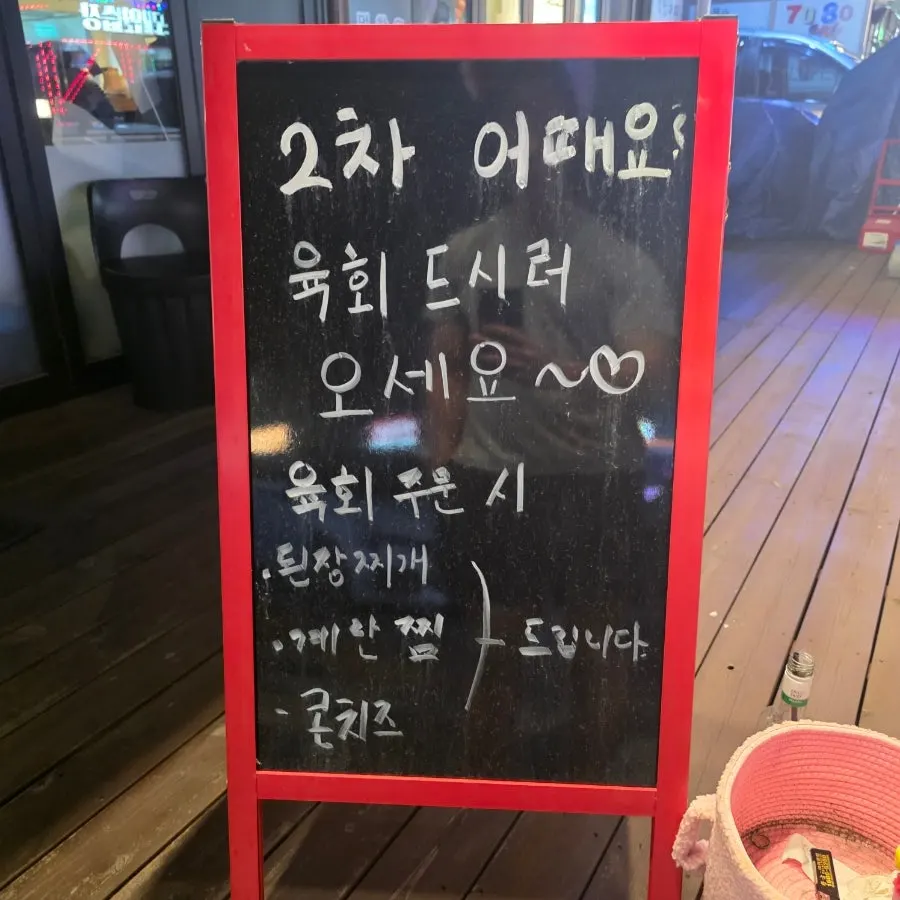 2차 어때요?
육회 드시러
오세요~♡
육회 주문 시
.된장찌개
.계란찜 } 드립니다.
- 콘치즈